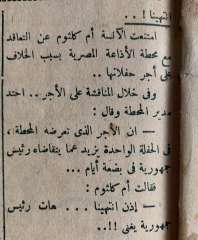 انتهينا ! . .
امتنعت الآنسة أم كلثوم عن التعاقد
مع محطة الأذاعة المصرية بسبب الخلاف
على أجر حفلاتها . .
وفى خلال المناقشة على الأجر . . احتد
مدير المحطة وقال :
— ان الأجر الذى نعرضه المحطة ،
فى الحفلة الواحدة يزيد عما يتقاضاه رئيس
جمهورية فى بضعة أيام . . .
فقالت أم كلثوم :
— إذن انتهينا . . . هات رئيس
جمهورية يغنى !! . .